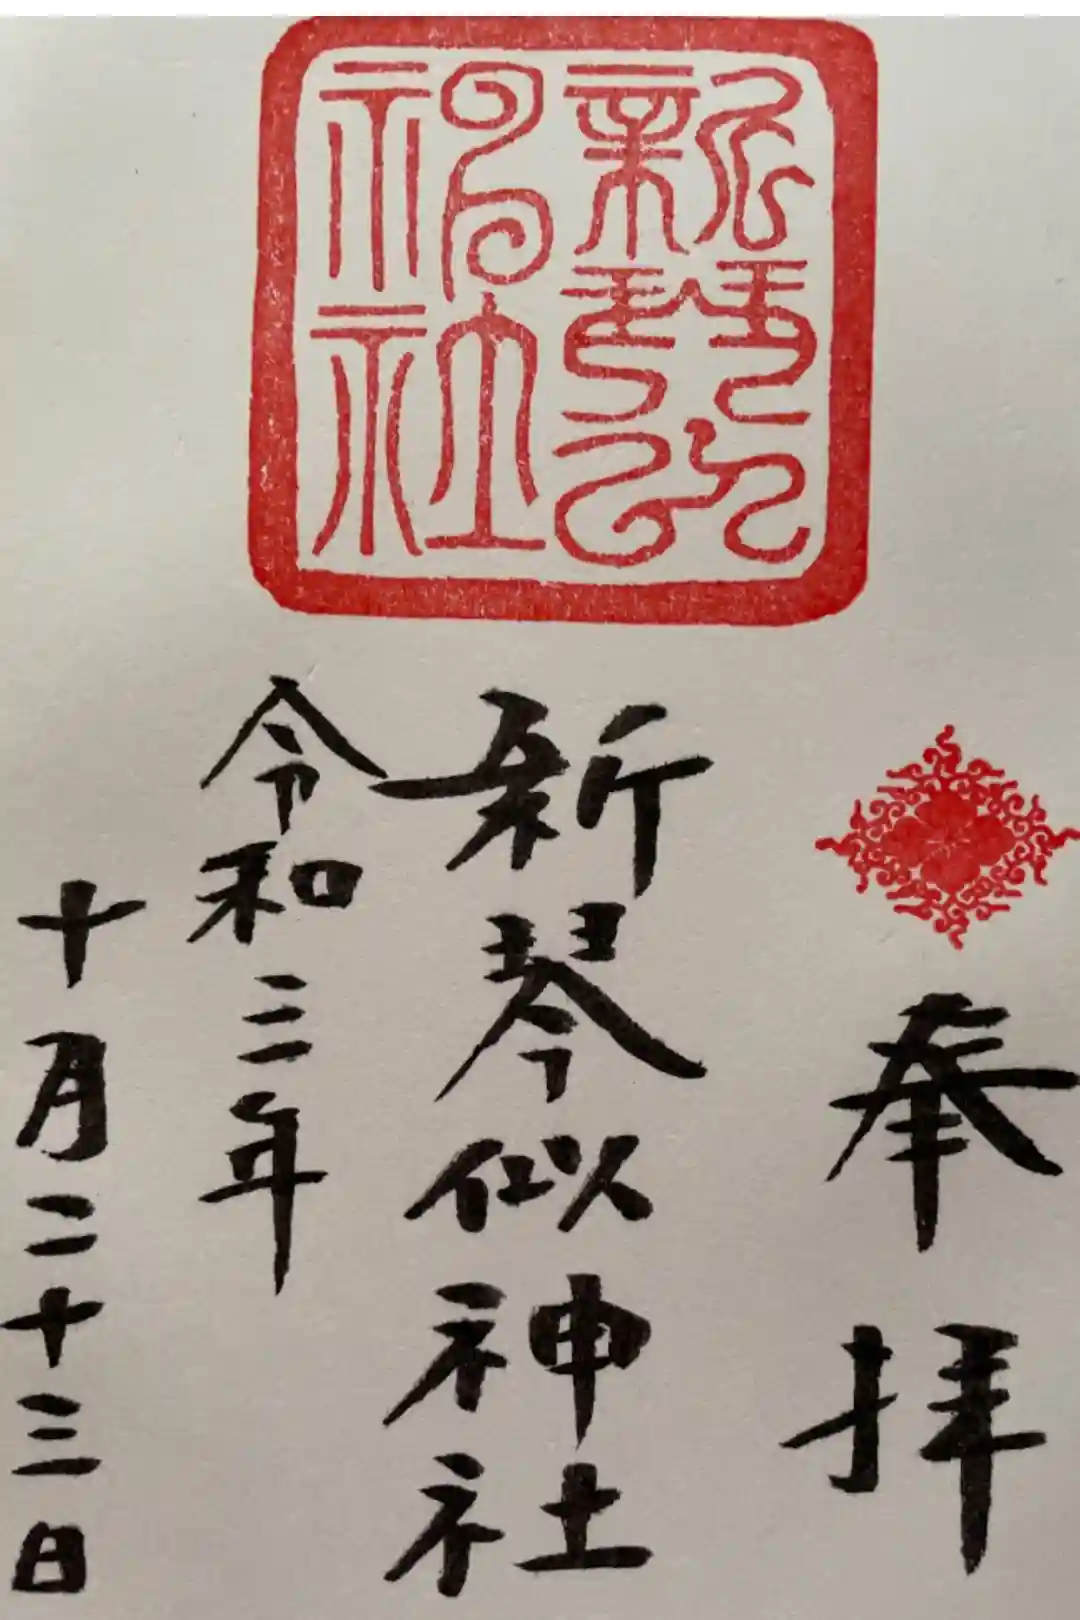 新琴似
神社
奉拝
新琴似神社
令和三年
十月二十三日